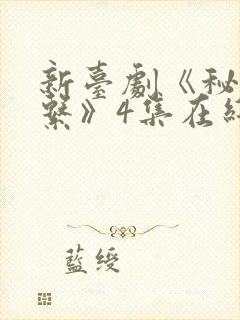 新臺劇《秘
繫》4集在
藍綬